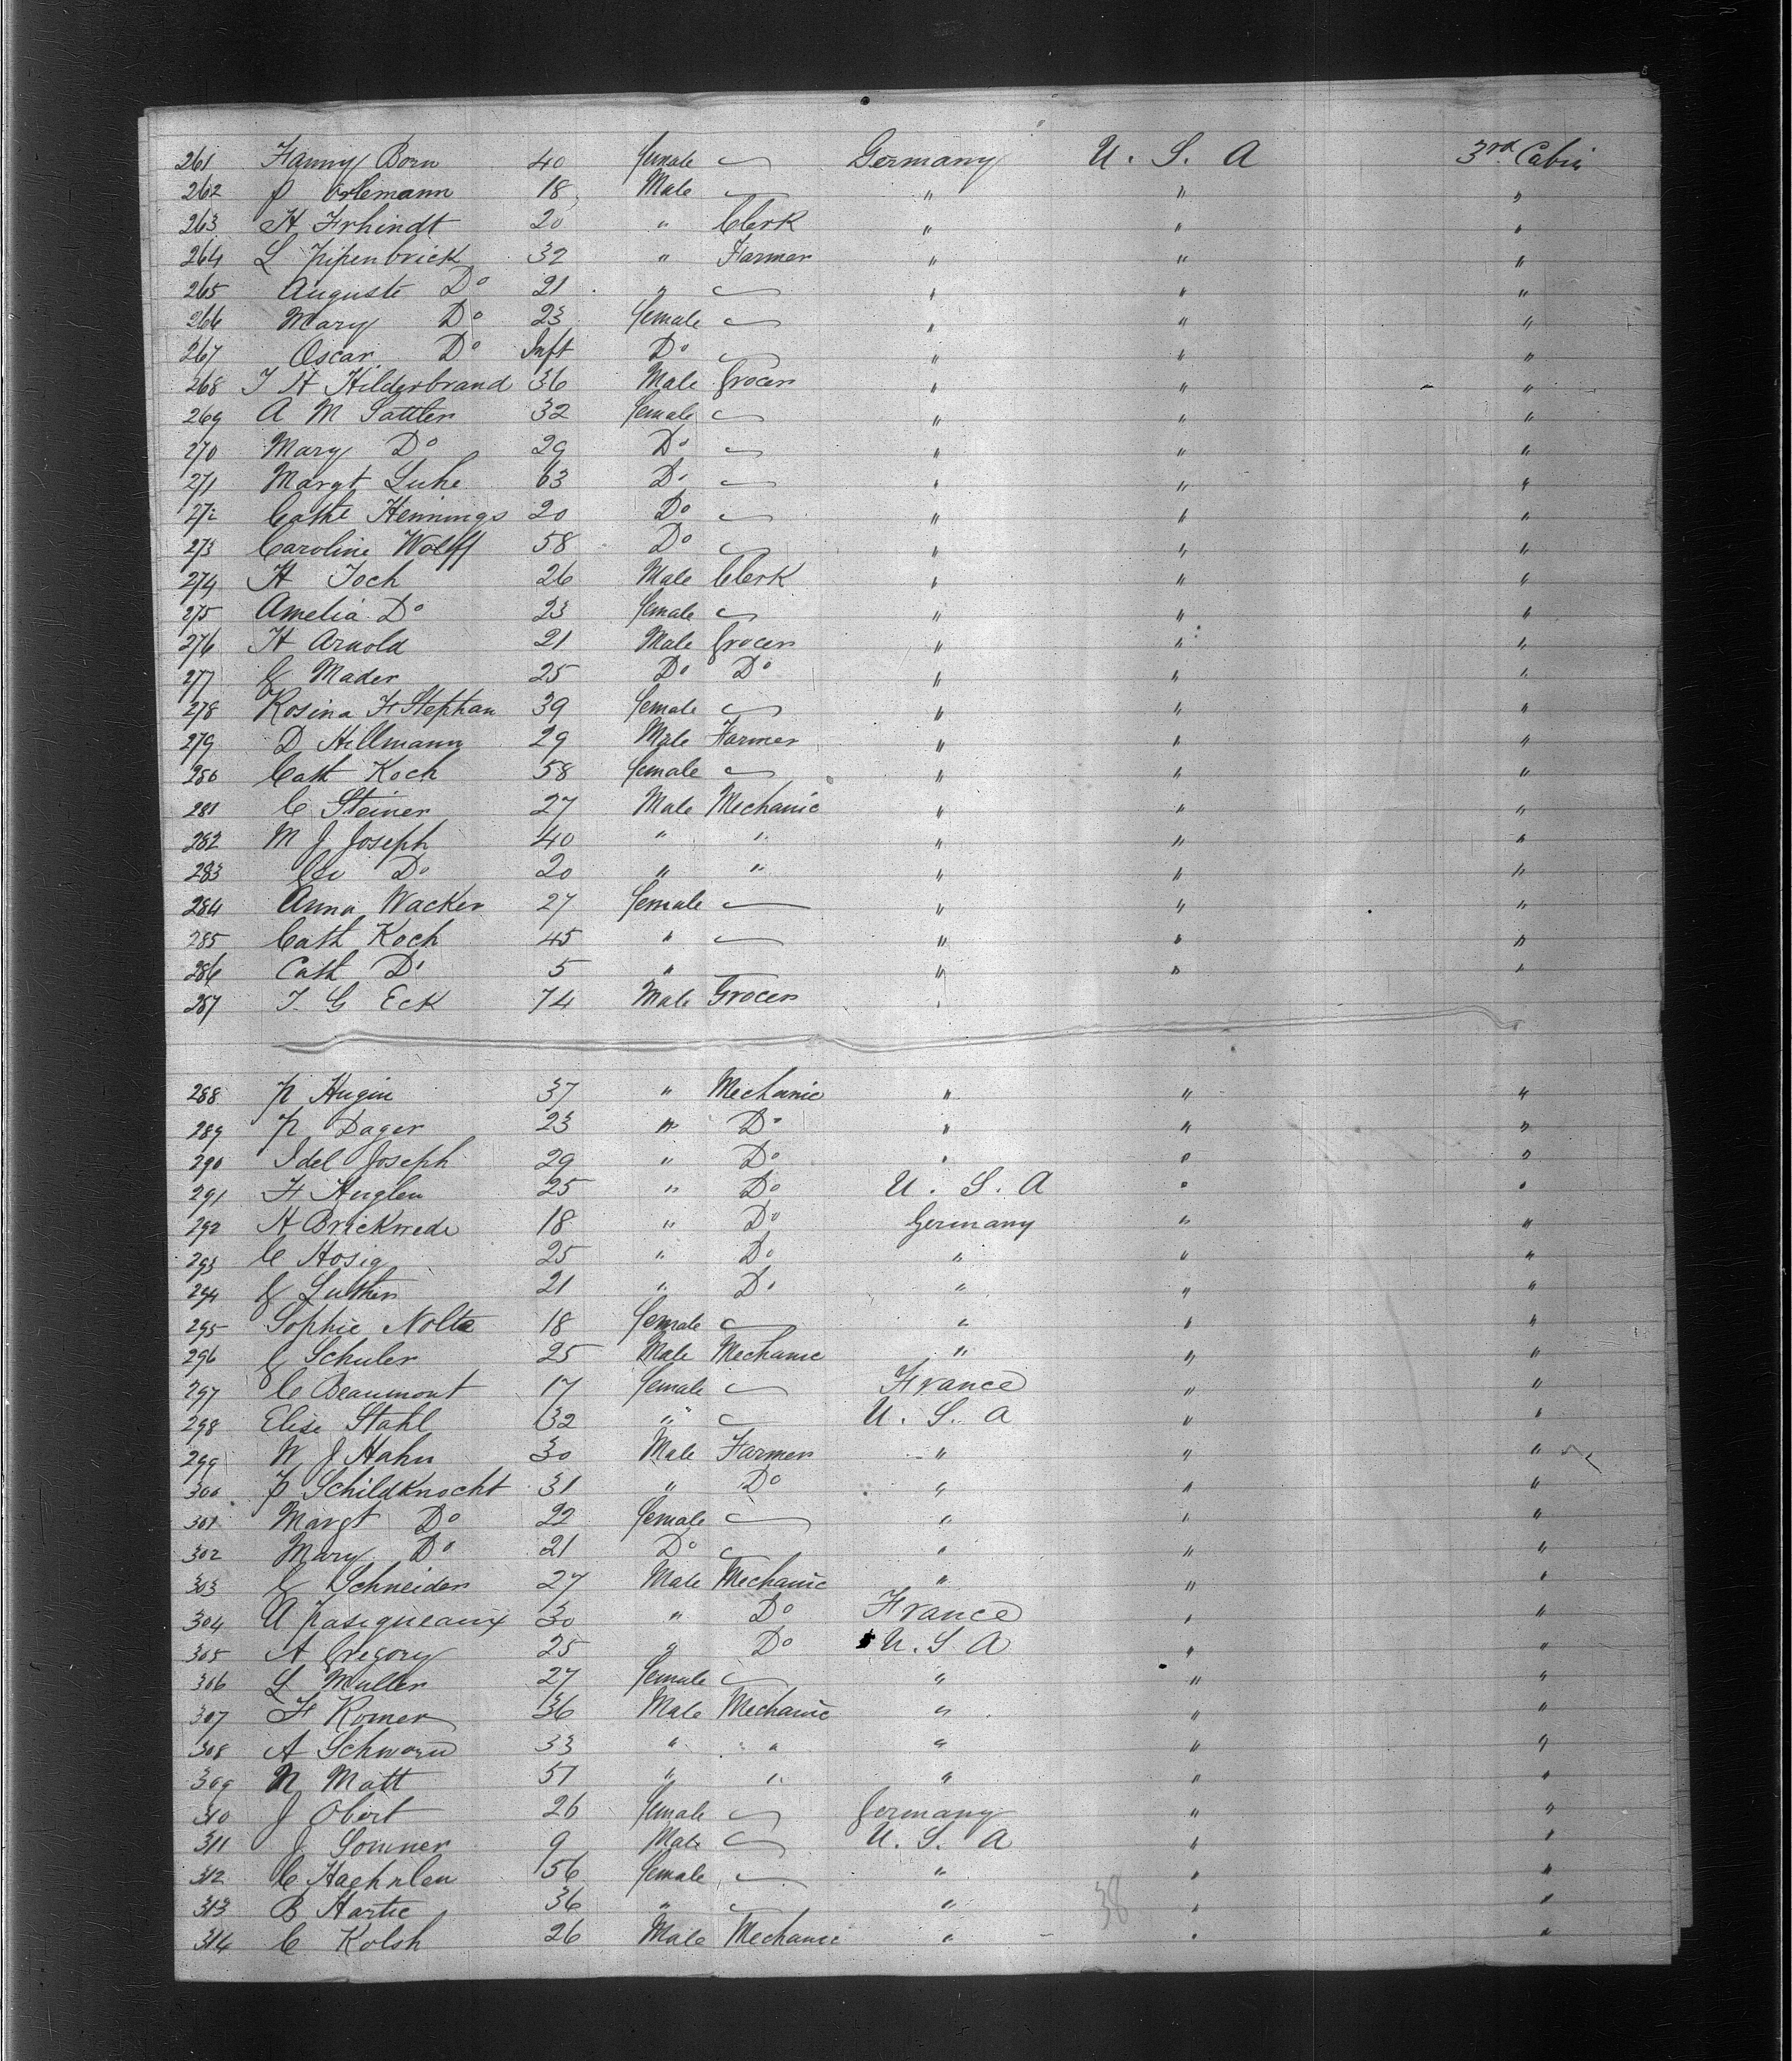 261 Fanny Born 40 female Germany U. S. A 3rd Cabin
262 P Ortemann 18 Male " " "
263 H Frhindt 20 " Clerk " " "
264 L Pipenbrick 32 " Farmer " " "
265 Auguste Do 21 " " " "
266 Mary Do 23 female " " "
267 Oscar Do Inft Do " " "
268 J H Hilderbrand 36 Male Grocer " " "
269 A M Sattler 32 female " " "
270 Mary Do 29 Do " " "
271 Margt Luhe 63 Do " " "
272 Cathe Hennings 20 Do " " "
273 Caroline Wolff 58 Do " " "
274 H Joch 26 Male Clerk " " "
275 Amelia Do 23 female " " "
276 H Arnold 21 Male Grocer " " "
277 G Mader 25 Do Do " " "
278 Rosina F Stephan 39 female " " "
279 D Hillmann 29 Male Farmer " " "
280 Cath Koch 58 female " " "
281 C Steiner 27 Male Mechanic " " "
282 M J Joseph 40 " " " " "
283 Do 20 " " " " "
284 Anna Wacker 27 female " " "
285 Cath Koch 45 " " " "
286 Cath Do 5 " " " "
287 J. G Eck 74 Male Grocer "
288 P Hugin 37 " Mechanic " " "
289 P Dager 23 " Do " " "
290 Idel Joseph 29 " Do " " "
291 F Huglen 25 " Do U. S. A " "
292 H Brickwede 18 " Do Germany " "
293 C Hosig 25 " Do " " "
294 G Luther 21 " Do " " "
295 Sophie Nolte 18 female " " "
296 G Schuler 25 Male Mechanic " " "
297 C Beaumont 17 female France " "
298 Elise Stahl 32 " U. S. A " "
299 W J Hahn 30 Male Farmer " " "
300 P Schildknocht 31 " Do " " "
301 Margt Do 22 female " " "
302 Mary Do 21 Do " " "
303 G Schneider 27 Male Mechanic " " "
304 A Pasiqueaux 30 " Do France " "
305 A Gregory 25 " Do U. S A " "
306 L Muller 27 female " " "
307 F Romer 36 Male Mechanic " " "
308 A Schwaru 33 " " " " "
309 N Matt 51 " " " " "
310 J Obert 26 female Germany " "
311 J Sommer 9 Male U. S. A " "
312 C Haehnlen 56 female " " "
313 B Hartie 36 " " " "
314 C Kolsh 26 Male Mechanic " " "
38